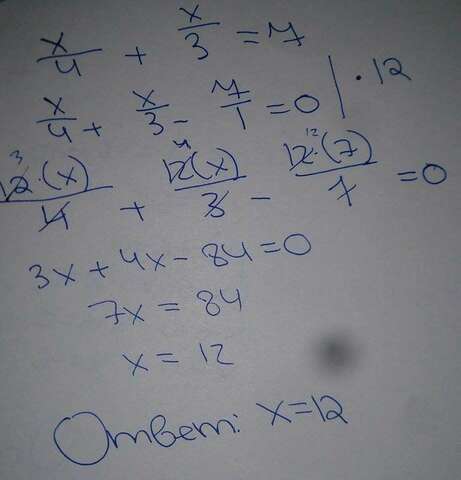 x/4 + x/3 = 7
x/4 + x/3 - 7/1 = 0 | · 12
3 12·(x)/4 + 4 12(x)/3 - 12 12·(7)/1 = 0
3x + 4x - 84 = 0
7x = 84
x = 12
Ответ: x = 12